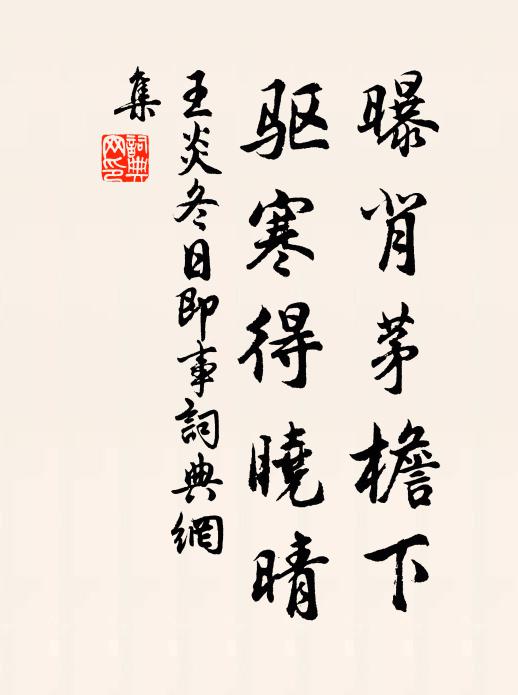 曝背茅檐下
驱寒得曉晴
王炎冬日即事詞典網
集
詞典
网印